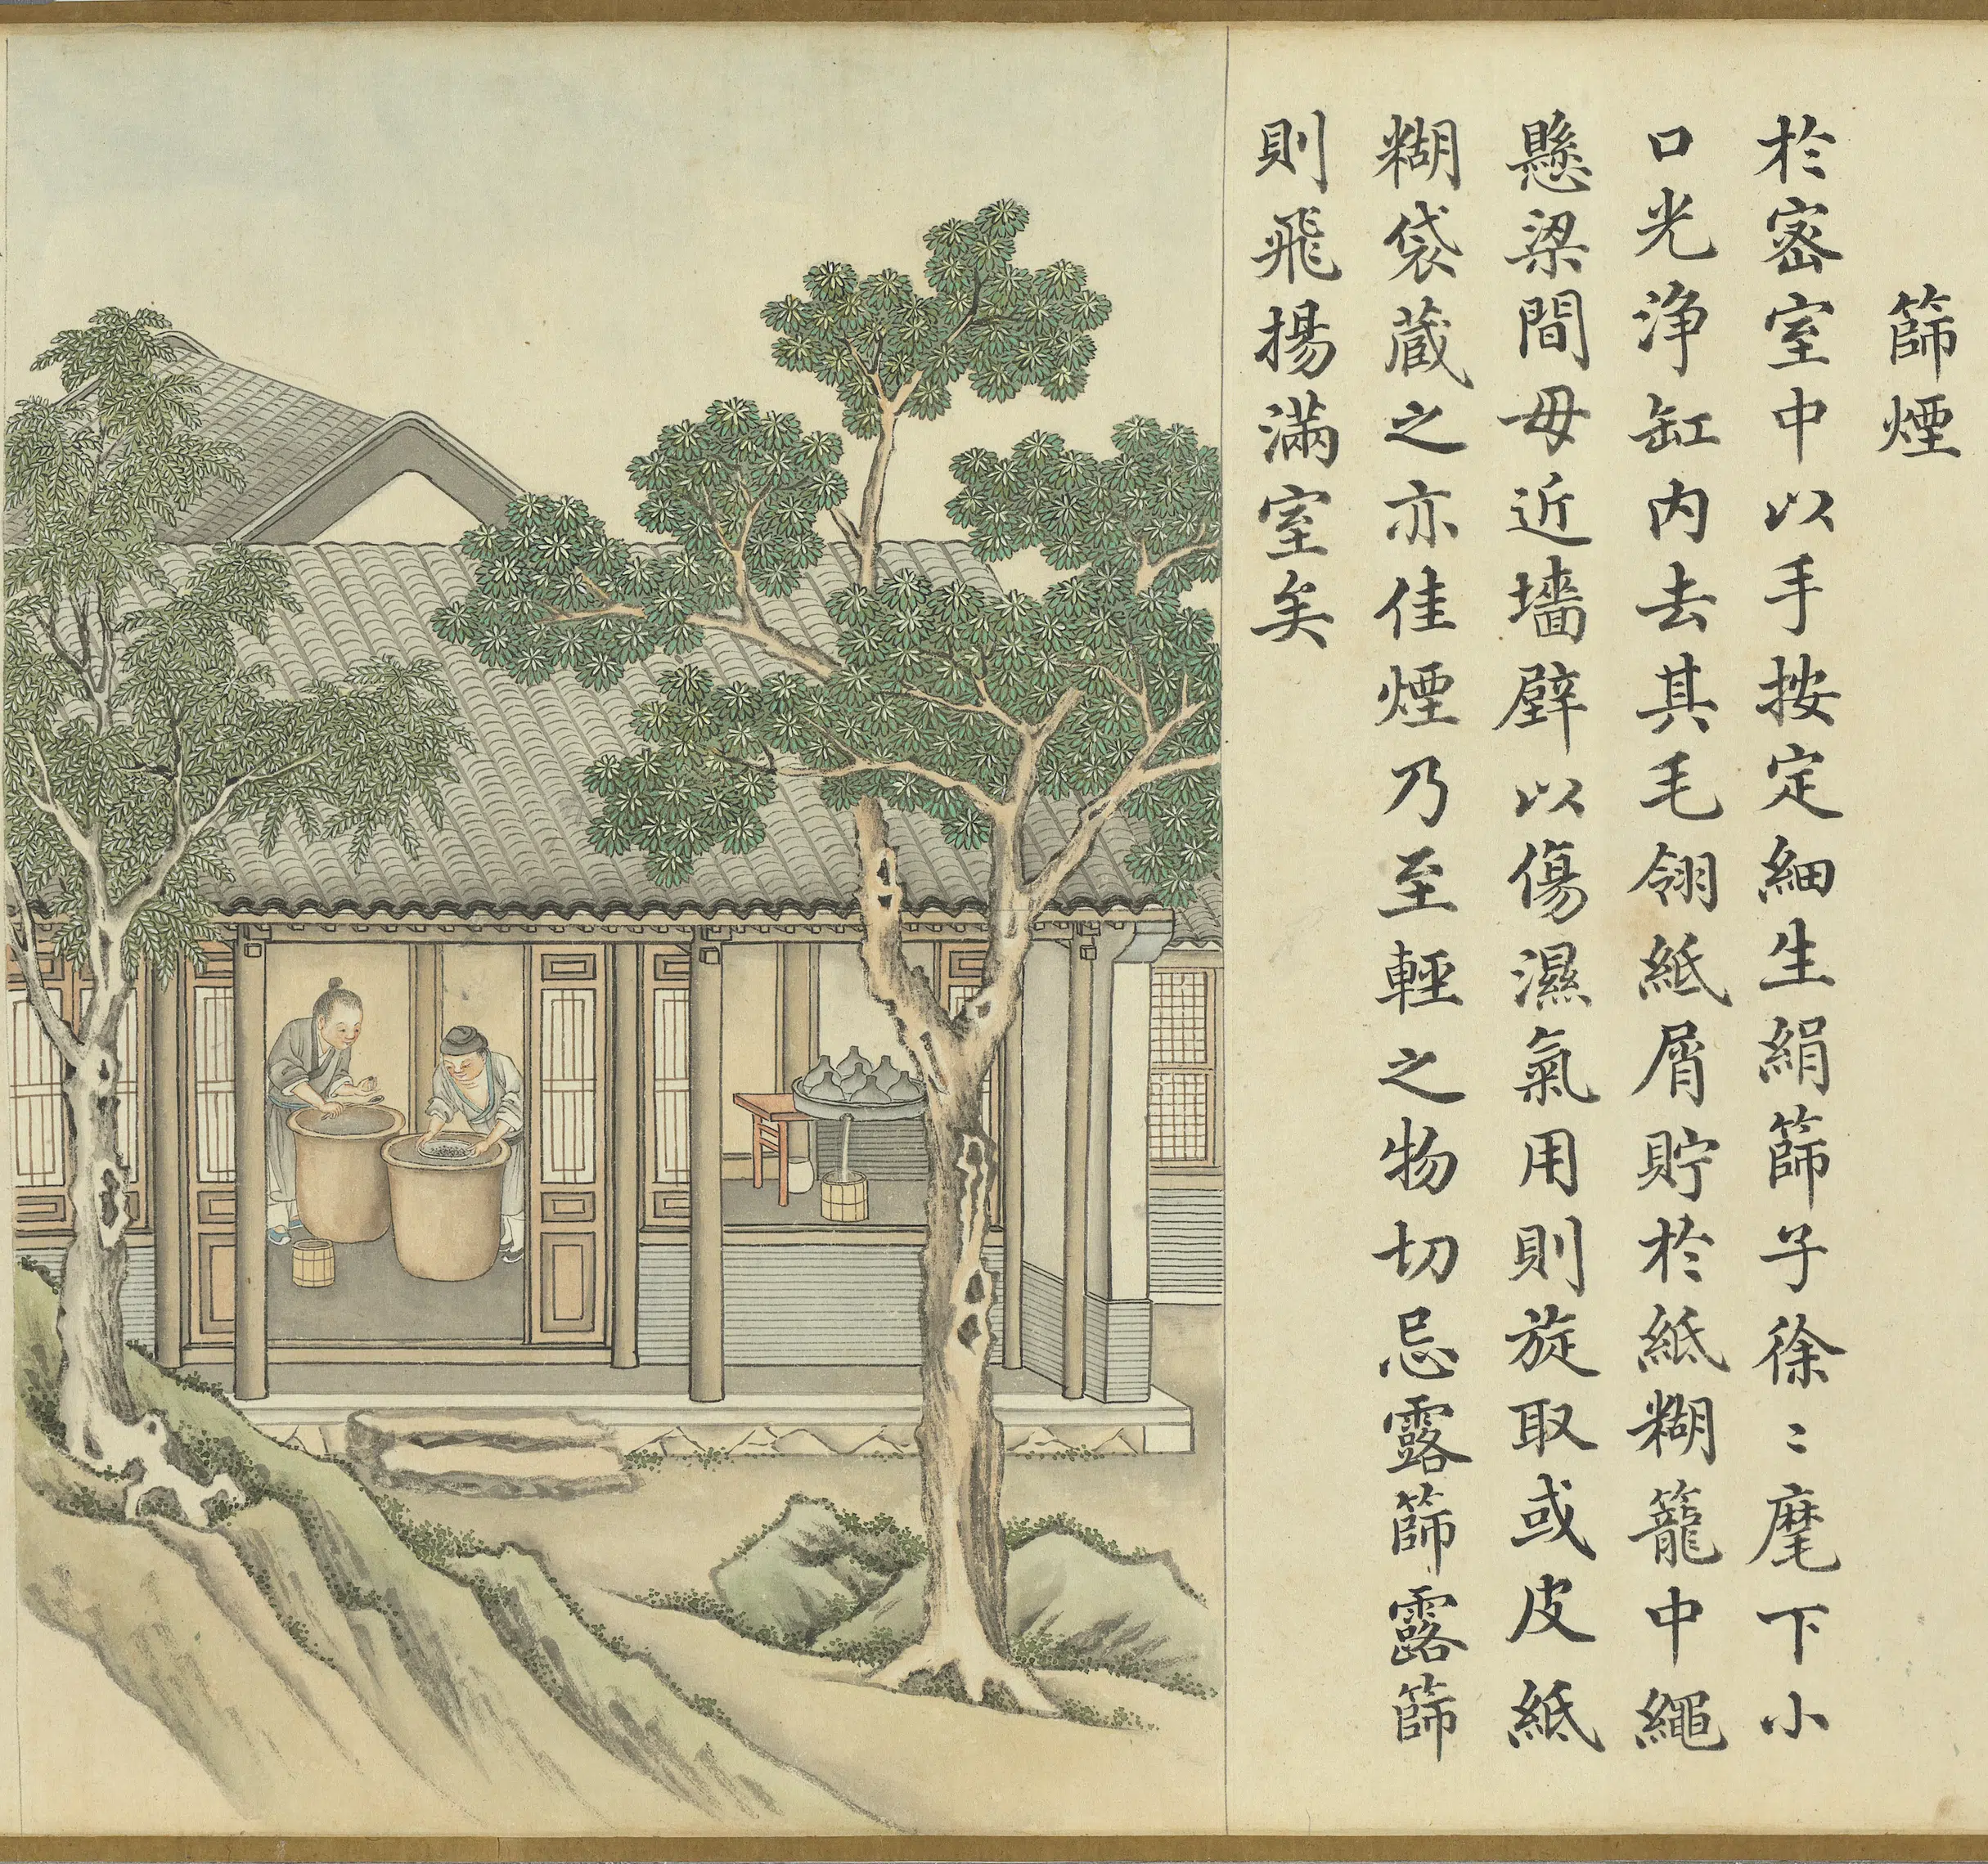 篩煙
於密室中以手按定細生絹篩子徐〻麾下小
口光淨缸内去其毛翎紙屑貯於紙糊籠中繩
懸梁間毋近墻壁以傷濕氣用則旋取或皮紙
糊袋蔵之亦佳煙乃至輕之物切忌露篩露篩
則飛揚滿室矣